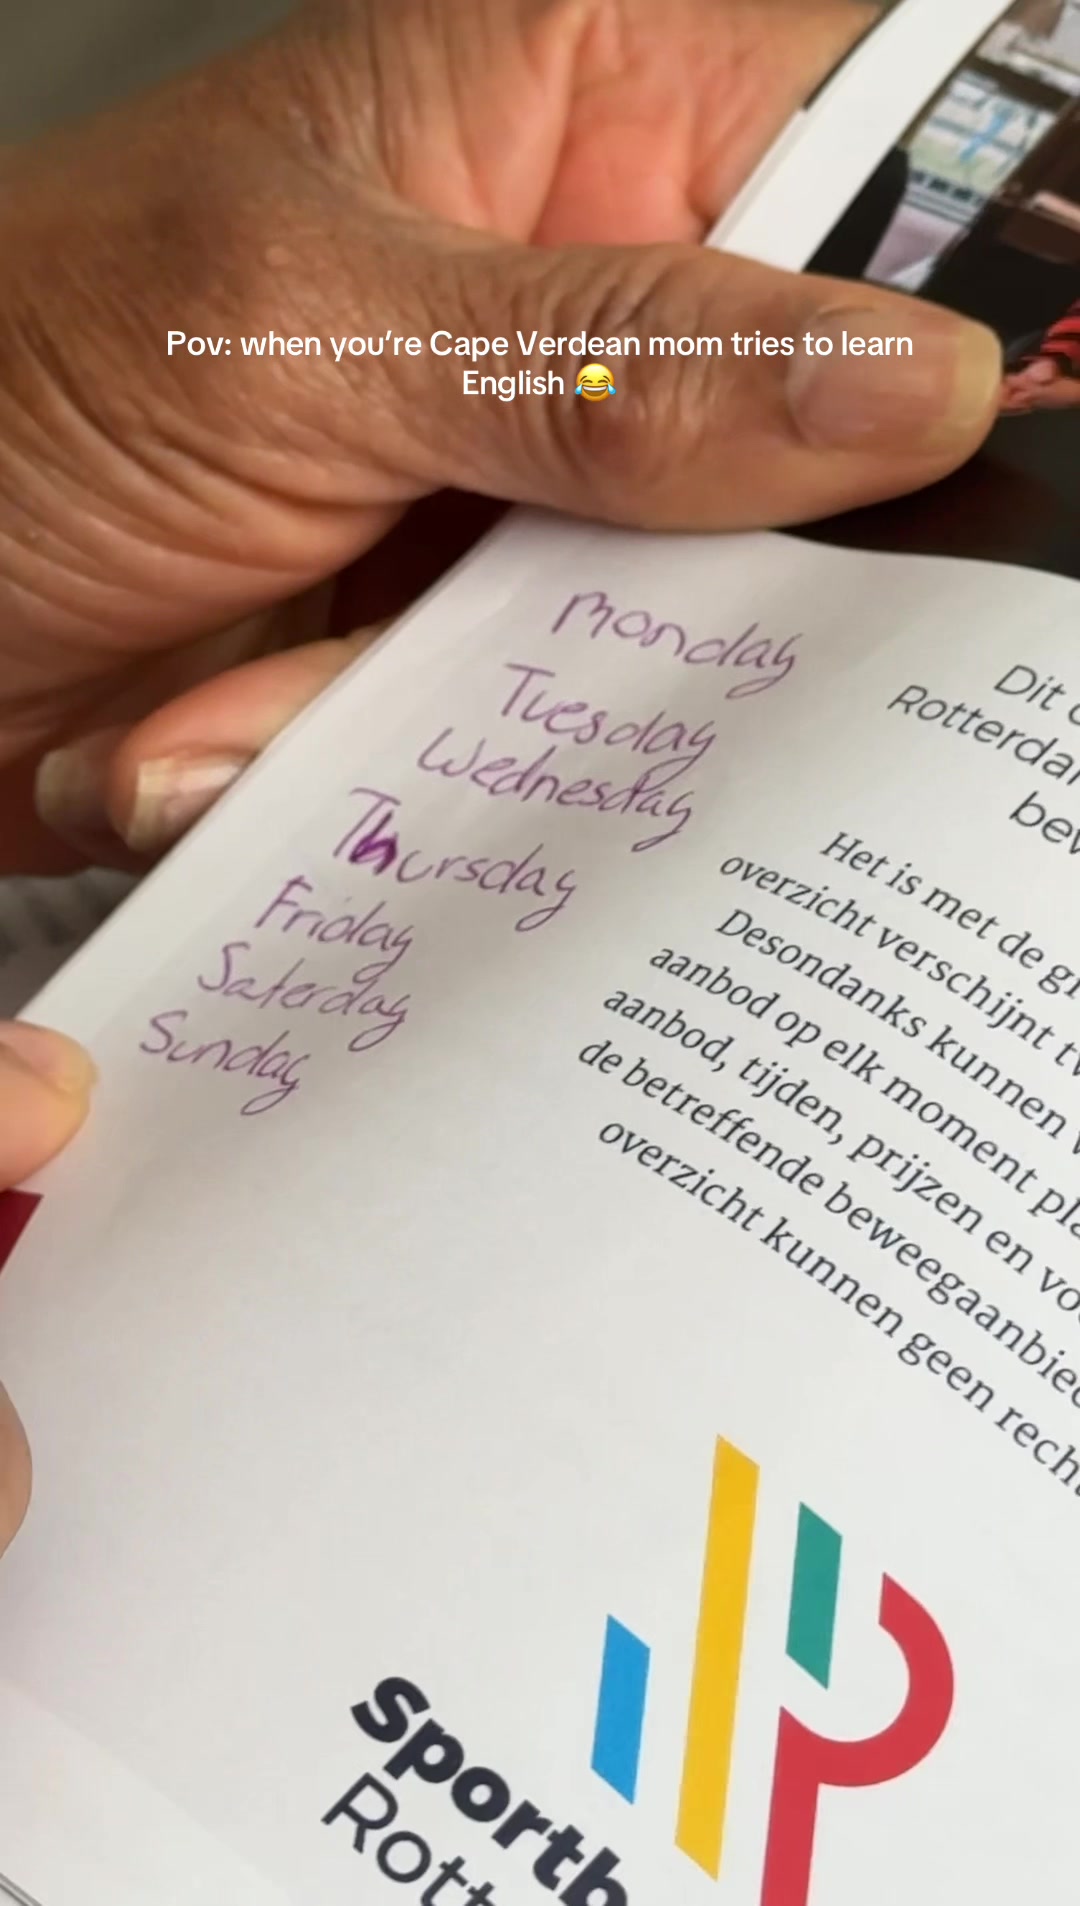 Pov: when you’re Cape Verdean mom tries to learn
English 😂
Monday
Tuesday
Wednesday
Thursday
Friday
Saterday
Sunday
Dit
Rotterdam
bew
Het is met de gr
overzicht verschijnt tw
Desondanks kunnen
aanbod op elk moment pla
aanbod, tijden, prijzen en vo
de betreffende beweegaanbied
overzicht kunnen geen recht
sportb
Rott